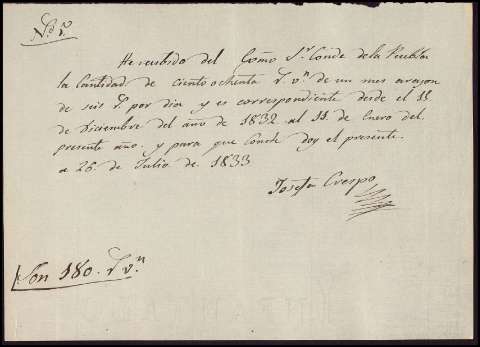 He recibido del Exmo Sr. Conde de la Puebla
la Cantidad de ciento ochenta Rs. vn. de un mes arazon
de seis Rs. por dia y es correspondiente desde el 11
de Diciembre del año de 1832 al 11 de Enero del
presente año. y para que Conste doy el presente.
a 26 de Julio de 1833
Josefa Crespo
Son 180. Rs. vn.